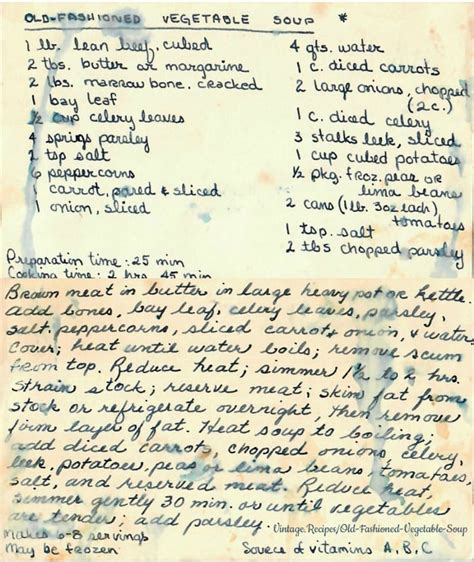 OLD-FASHIONED VEGETABLE SOUP *
1 lb. lean beef, cubed
2 tbs. butter or margarine
2 lbs. marrow bone, cracked
1 bay leaf
½ cup celery leaves
4 sprigs parsley
2 tsp salt
6 peppercorns
1 carrot, pared & sliced
1 onion, sliced
4 qts. water
1 c. diced carrots
2 large onions, chopped
(2 c.)
1 c. diced celery
3 stalks leek, sliced
1 cup cubed potatoes
½ pkg. froz. peas or
lima beans
2 cans (1 lb. 3oz each)
tomatoes
1 tsp. salt
2 tbs chopped parsley
Preparation time: 25 min
Cooking time: 2 hrs 45 min
Brown meat in butter in large heavy pot or kettle
add bones, bay leaf, celery leaves, parsley,
salt, peppercorns, sliced carrot & onion, & water
cover; heat until water boils; remove scum
from top. Reduce heat; simmer 1½ to 2 hrs.
strain stock; reserve meat; skim fat from
stock or refrigerate overnight, then remove
firm layer of fat. Heat soup to boiling;
add diced carrots, chopped onions, celery,
leek, potatoes, peas or lima beans, tomatoes,
salt, and reserved meat. Reduce heat,
simmer gently 30 min. or until vegetables
are tender; add parsley. • Vintage.Recipes/Old-Fashioned-Vegetable-Soup
Makes 6-8 servings
May be frozen
Source of vitamins A, B, C